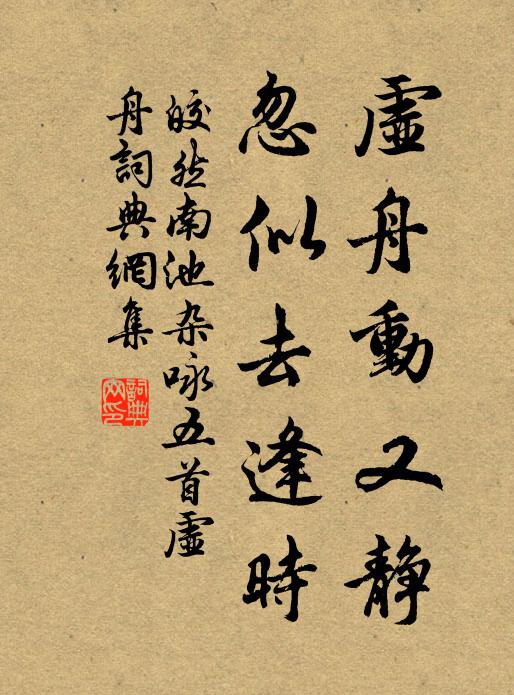 虛舟動又静
忽似去逢時
皎然南池杂咏五首虛
舟詞典網集
詞典